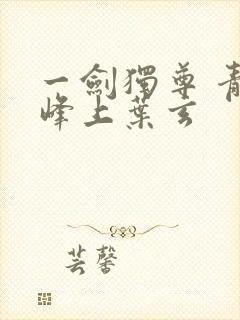 一劍獨尊 青
峰上葉玄
芸馨